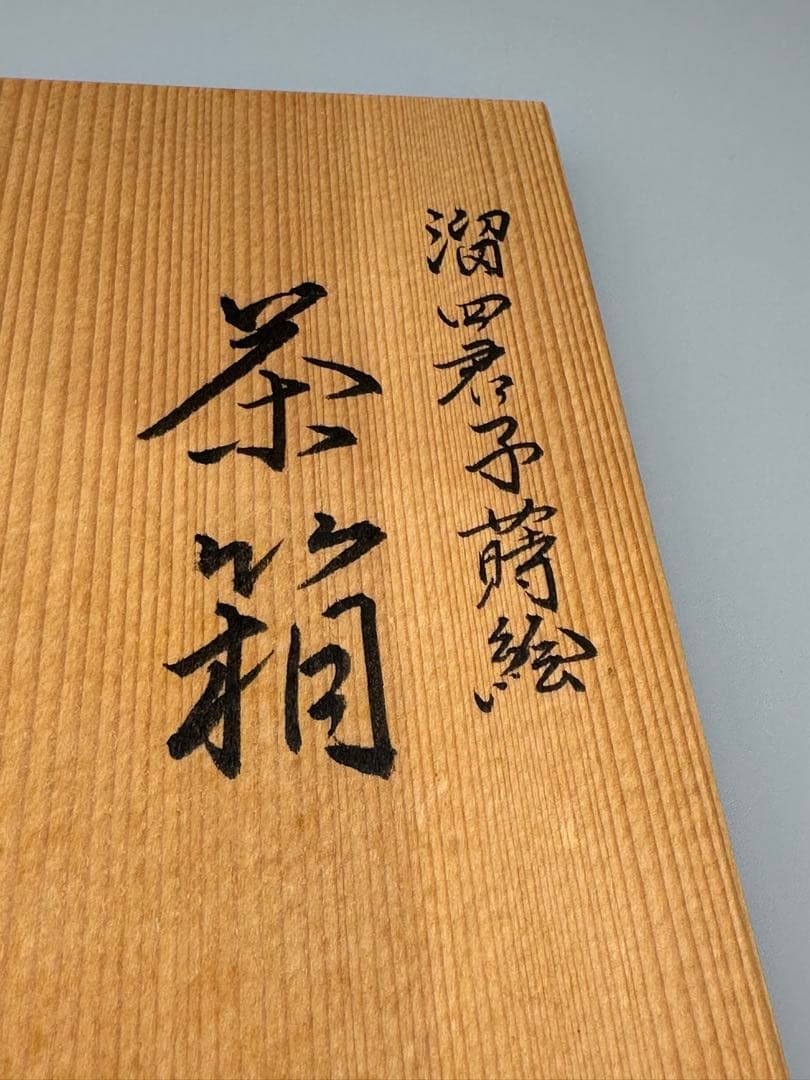 溜四君子蒔絵
茶箱